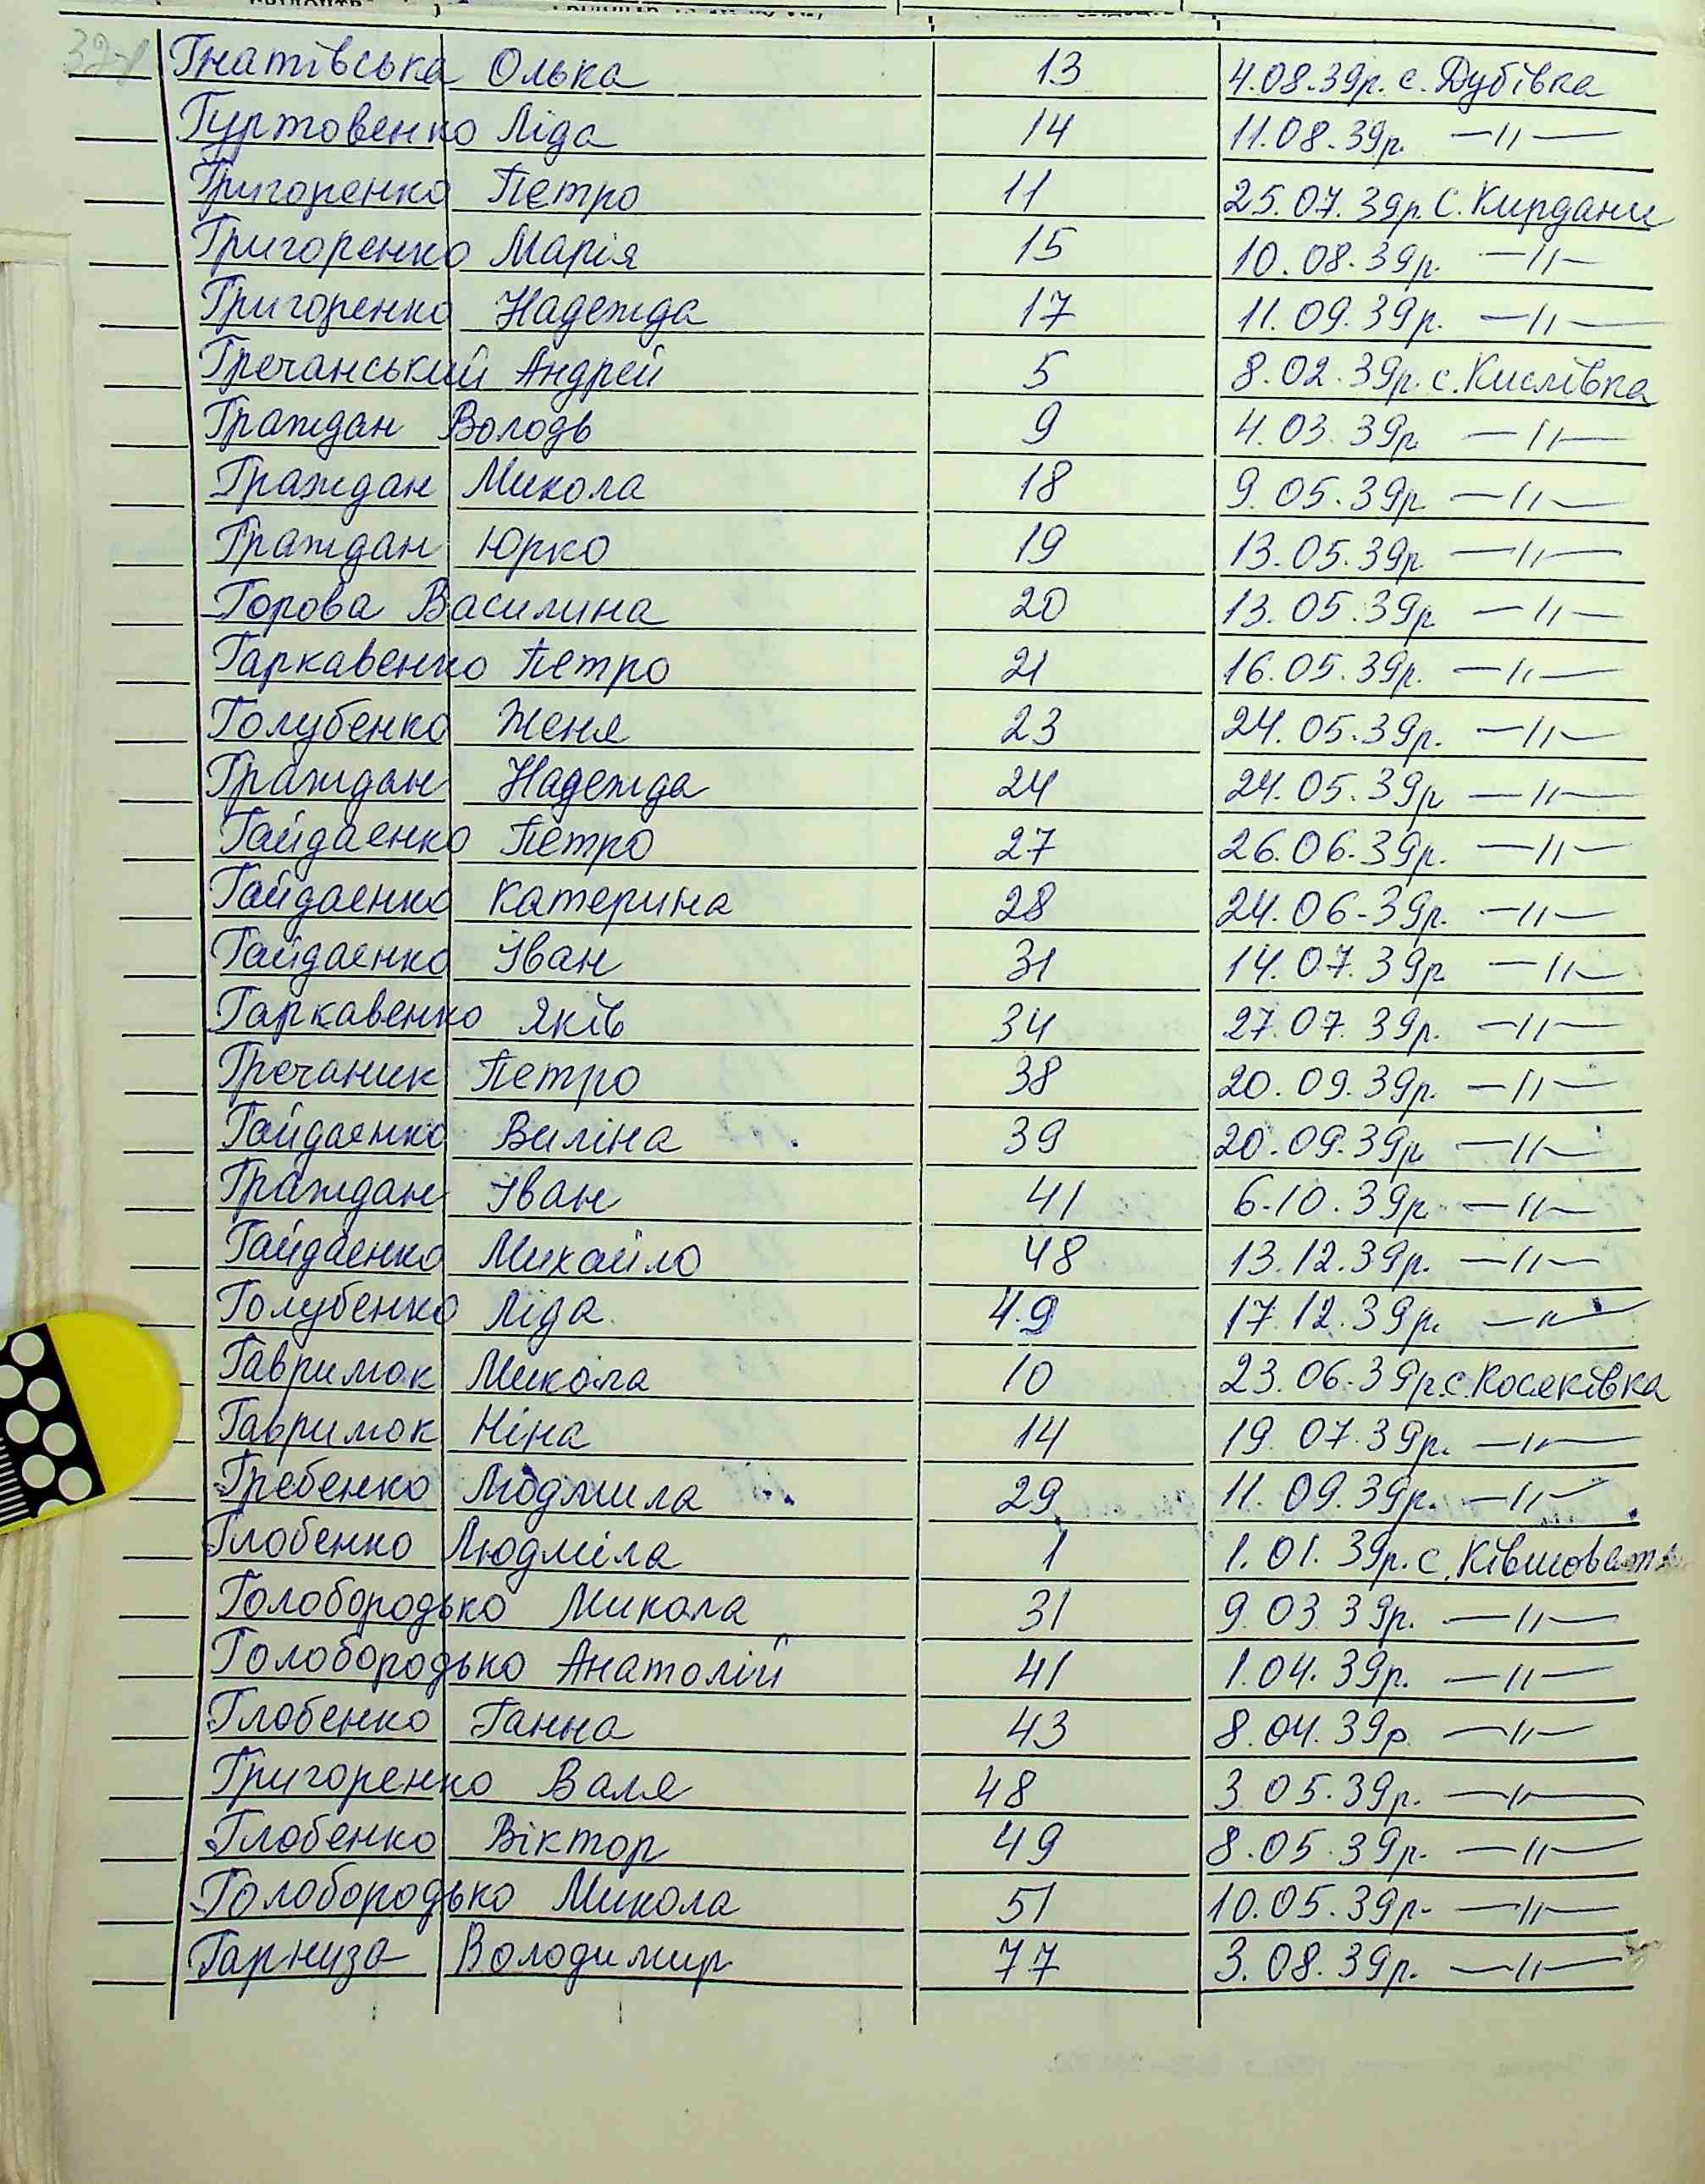 Гнатівська Олька 13 4.08.39р. с. Дубівка
Гуртовенко Ліда 14 11.08.39р. —〃—
Григоренко Петро 11 25.07.39р. С. Кирдани
Григоренко Марія 15 10.08.39р. —〃—
Григоренко Надежда 17 11.09.39р. —〃—
Гречанський Андрей 5 8.02.39р. с. Кислівка
Граждан Володь 9 4.03.39р —〃—
Граждан Микола 18 9.05.39р. —〃—
Граждан Юрко 19 13.05.39р. —〃—
Горова Василина 20 13.05.39р —〃—
Гаркавенко Петро 21 16.05.39р. —〃—
Голубенко Женя 23 24.05.39р. —〃—
Граждан Надежда 24 24.05.39р —〃—
Гайдаенко Петро 27 26.06.39р. —〃—
Гайдаенко Катерина 28 24.06-39р. —〃—
Гайдаенко Іван 31 14.07.39р —〃—
Гаркавенко Яків 34 27.07.39р. —〃—
Гречаник Петро 38 20.09.39р. —〃—
Гайдаенко Виліна 39 20.09.39р. —〃—
Граждан Іван 41 6.10.39р —〃—
Гайдаенко Михайло 48 13.12.39р. —〃—
Голубенко Ліда 49 17.12.39р. —〃—
Гаврилюк Микола 10 23.06.39р. с. Косяківка
Гаврилюк Ніна 14 19.07.39р. —〃—
Гребенко Людмила 29 11.09.39р. —〃—
Глобенко Людміла 1 1.01.39р. с.
Голобородько Микола 31 9.03.39р. —〃—
Голобородько Анатолій 41 1.04.39р. —〃—
Глобенко Ганна 43 8.04.39р. —〃—
Григоренко Валя 48 3.05.39р. —〃—
Глобенко Віктор 49 8.05.39р. —〃—
Голобородько Микола 51 10.05.39р. —〃—
Гарнуза Володимир 77 3.08.39р. —〃—